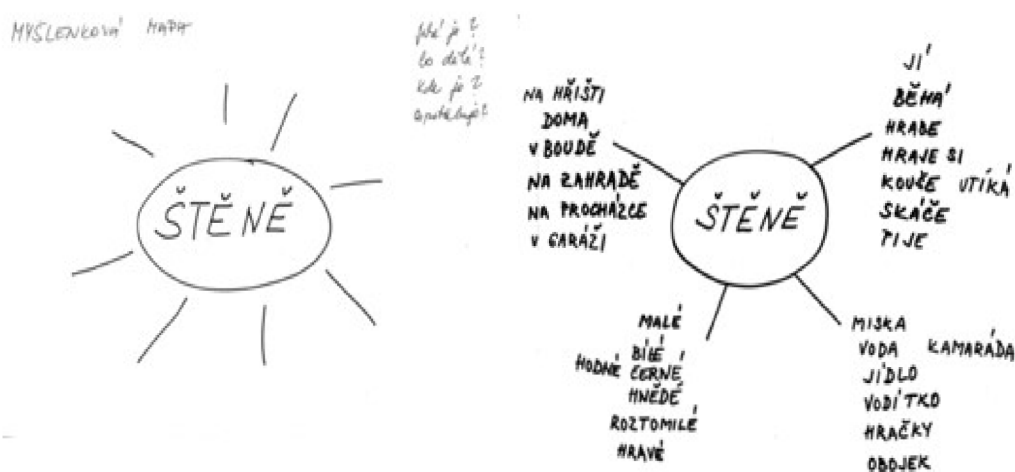 MYŠLENKOVÁ MAPA
Jaké je?
Co dělá?
Kde je?
Co potřebuje?
ŠTĚNĚ
NA HŘIŠTI
DOMA
V BOUDĚ
NA ZAHRADĚ
NA PROCHÁZCE
V GARÁŽI
JÍ
BĚHÁ
HRABE
HRAJE SI
KOUŠE UTÍKÁ
SKÁČE
PIJE
ŠTĚNĚ
MALÉ
BÍLÉ
HODNÉ ČERNÉ
HNĚDÉ
ROZTOMILÉ
HRAVÉ
MISKA
VODA KAMARÁDA
JÍDLO
VODÍTKO
HRAČKY
OBOJEK